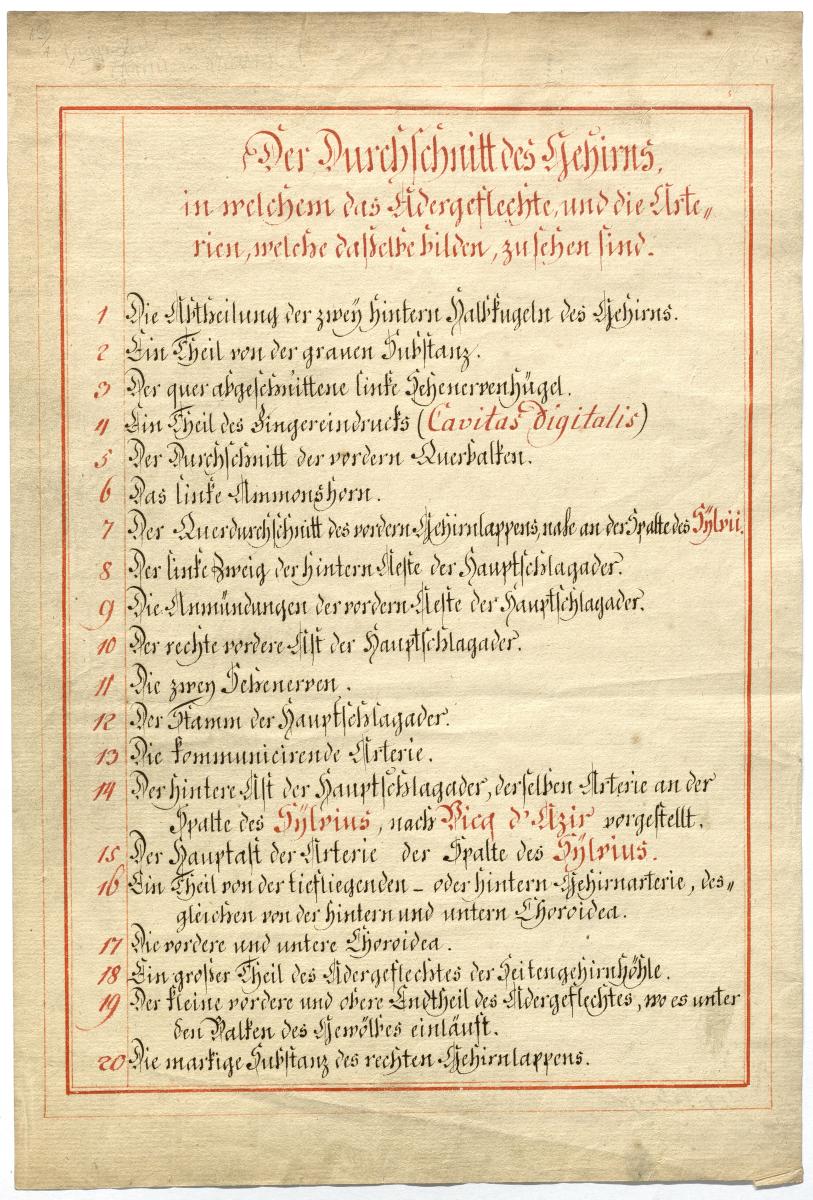 Der Durchschnitt des Gehirns,
in welchem das Adergeflechte, und die Arte„
rien, welche dasselbe bilden, zu sehen sind.
1 Die Abtheilung der zwey hintern Halbkugeln des Gehirns.
2 Ein Theil von der grauen Substanz.
3 Der quer abgeschnittene linke Sehenervenhügel.
4 Ein Theil des Fingereindrucks (Cavitas Digitalis)
5 Der Durchschnitt der vordern Querbalken.
6 Das linke Ammonshorn.
7 Der Querdurchschnitt des vordern Gehirnlappens, nahe an der Spalte des Sÿlvii.
8 Der linke Zweig der hintern Aeste der Hauptschlagader.
9 Die Anmündungen der vordern Aeste der Hauptschlagader.
10 Der rechte vordere Ast der Hauptschlagader.
11 Die zwey Sehenerven.
12 Der Stamm der Hauptschlagader.
13 Die kommunicirende Arterie.
14 Der hintere Ast der Hauptschlagader, derselben Arterie an der
Spalte des Sÿlvius, nach Vicq d'Azir vorgestellt.
15 Der Hauptast der Arterie der Spalte des Sÿlvius.
16 Ein Theil von der tiefliegenden – oder hintern Gehirnarterie, des„
gleichen von der hintern und untern Choroidea.
17 Die vordere und untere Choroidea.
18 Ein großer Theil des Adergeflechtes der Seitengehirnhöhle.
19 Der kleine vordere und obere Endtheil des Adergeflechtes, wo es unter
den Balken des Gewölbes einläuft.
20 Die markige Substanz des rechten Gehirnlappens.